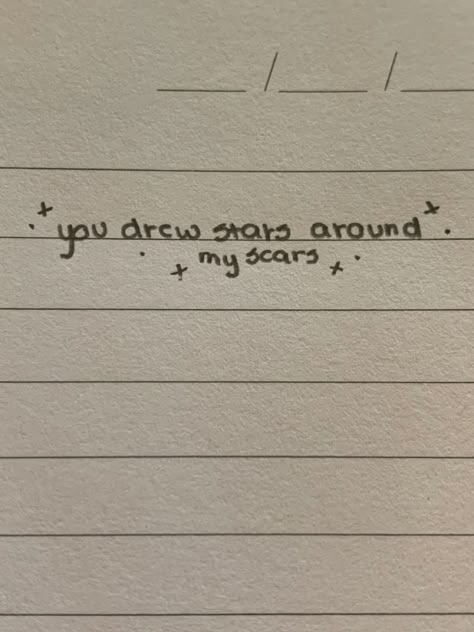 you drew stars around
my scars